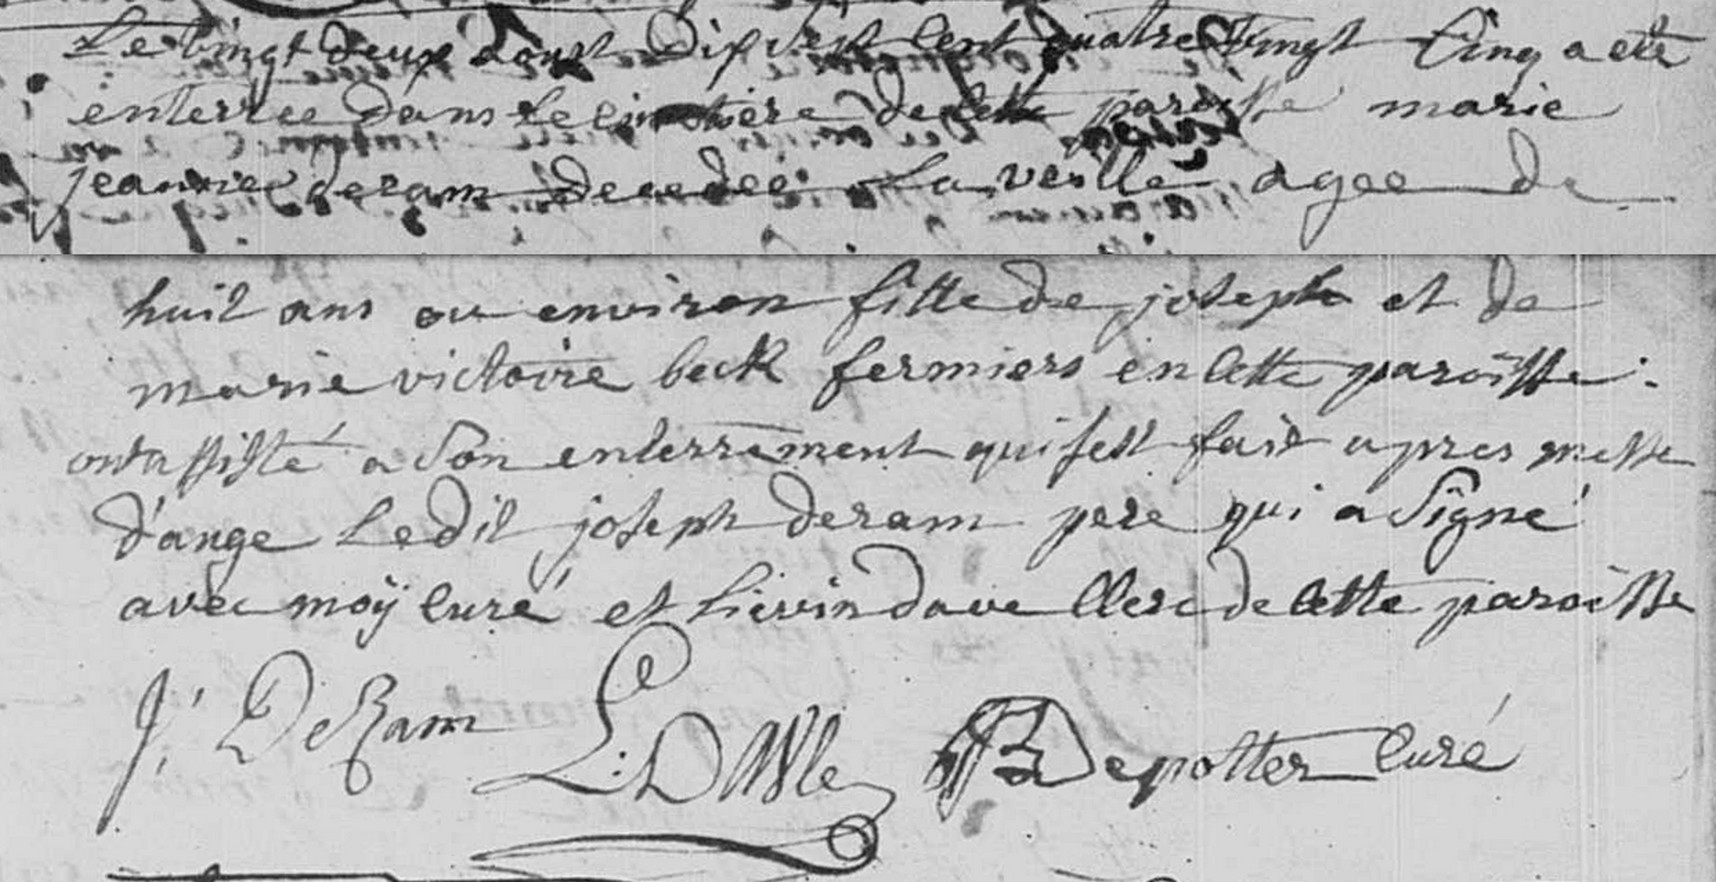 Le vingt deux aoust dix sept cent quatre vingt cinq a eté
enterrée dans le cimetiere de cette paroisse marie
jeanne deram decedée la veille agee de
huit ans ou environ fille de joseph et de
marie victoire beck fermiers en cette paroisse.
ont assisté a son enterrement qui s'est fait apres messe
d'ange le dit joseph deram pere qui a signé
avec moÿ curé et Lievin dave clerc de cette paroisse
J: DeRam L: DAVe Depotter curé